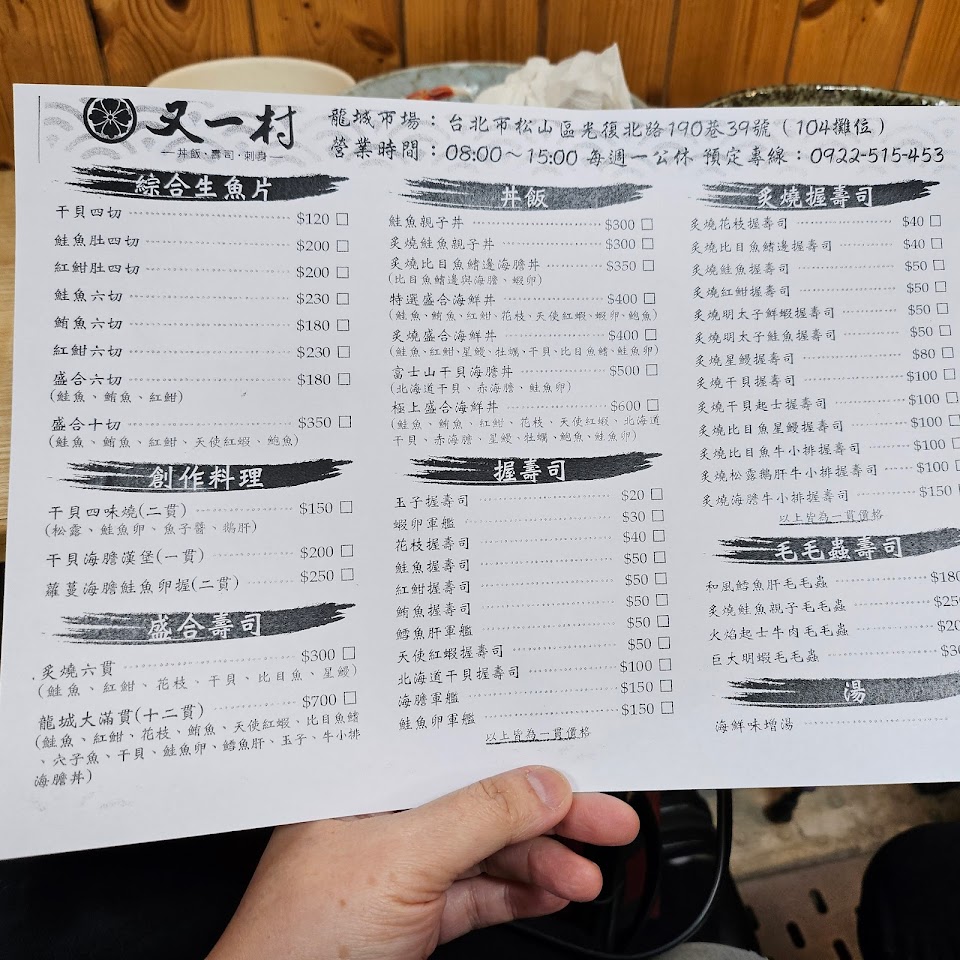 又一村
丼飯、壽司、刺身
龍城市場：台北市松山區光復北路190巷39號（104攤位）
營業時間：08:00～15:00 每週一公休 預定專線：0922-515-453
綜合生魚片
干貝四切 $120 □
鮭魚肚四切 $200 □
紅魽肚四切 $200 □
鮭魚六切 $230 □
鮪魚六切 $180 □
紅魽六切 $230 □
盛合六切 $180 □
(鮭魚、鮪魚、紅魽)
盛合十切 $350 □
(鮭魚、鮪魚、紅魽、天使紅蝦、鮑魚)
創作料理
干貝四味燒(二貫) $150 □
(松露、鮭魚卵、魚子醬、鵝肝)
干貝海膽漢堡(一貫) $200 □
蘿蔓海膽鮭魚卵握(二貫) $250 □
盛合壽司
炙燒六貫 $300 □
(鮭魚、紅魽、花枝、干貝、比目魚、星鰻)
龍城大滿貫(十二貫) $700 □
(鮭魚、紅魽、花枝、鮪魚、天使紅蝦、比目魚鰭
、穴子魚、干貝、鮭魚卵、鱈魚肝、玉子、牛小排
海膽丼)
丼飯
鮭魚親子丼 $300 □
炙燒鮭魚親子丼 $300 □
炙燒比目魚鰭邊海膽丼 $350 □
(比目魚鰭邊與海膽、蝦卵)
特選盛合海鮮丼 $400 □
(鮭魚、鮪魚、紅魽、花枝、天使紅蝦、蝦卵、鮑魚)
炙燒盛合海鮮丼 $400 □
(鮭魚、紅魽、星鰻、牡蠣、干貝、比目魚鰭、鮭魚卵)
富士山干貝海膽丼 $500 □
(北海道干貝、赤海膽、鮭魚卵)
極上盛合海鮮丼 $600 □
(鮭魚、鮪魚、紅魽、花枝、天使紅蝦、北海道
干貝、赤海膽、星鰻、牡蠣、鮑魚、鮭魚卵)
握壽司
玉子握壽司 $20 □
蝦卵軍艦 $30 □
花枝握壽司 $40 □
鮭魚握壽司 $50 □
紅魽握壽司 $50 □
鮪魚握壽司 $50 □
鱈魚肝軍艦 $50 □
天使紅蝦握壽司 $50 □
北海道干貝握壽司 $100 □
海膽軍艦 $150 □
鮭魚卵軍艦 $150 □
以上皆為一貫價格
炙燒握壽司
炙燒花枝握壽司 $40 □
炙燒比目魚鰭邊握壽司 $40 □
炙燒鮭魚握壽司 $50 □
炙燒紅魽握壽司 $50 □
炙燒明太子鮮蝦握壽司 $50 □
炙燒明太子鮭魚握壽司 $50 □
炙燒星鰻握壽司 $80 □
炙燒干貝握壽司 $100 □
炙燒干貝起士握壽司 $100 □
炙燒比目魚星鰻握壽司 $100 □
炙燒比目魚牛小排握壽司 $100 □
炙燒松露鵝肝牛小排握壽司 $100 □
炙燒海膽牛小排握壽司 $150
以上皆為一貫價格
毛毛蟲壽司
和風鱈魚肝毛毛蟲 $180
炙燒鮭魚親子毛毛蟲
火焰起士牛肉毛毛蟲
巨大明蝦毛毛蟲
湯
海鮮味增湯